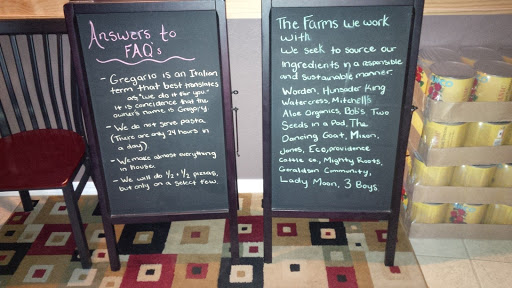 Answers to
FAQ's
- Gregario is an Italian
term that best translates
as, "we do it for you."
It is coincidence that the
owner's name is Gregory.
- We do not serve pasta.
(There are only 24 hours in
a day.)
- We make almost everything
in house.
- We will do 1/2 + 1/2 pizzas,
but only on a select few.
The Farms we work
with.
We seek to source our
ingredients in a responsible
and sustainable manner.
Worden, Hunsader, King
Watercress, Mitchell's
Aloe Organics, Bob's, Two
Seeds in a Pod, The
Dancing Goat, Mixon,
Jones, Eco, providence
Cattle co., Mighty Roots,
Geraldson Community,
Lady Moon, 3 Boys